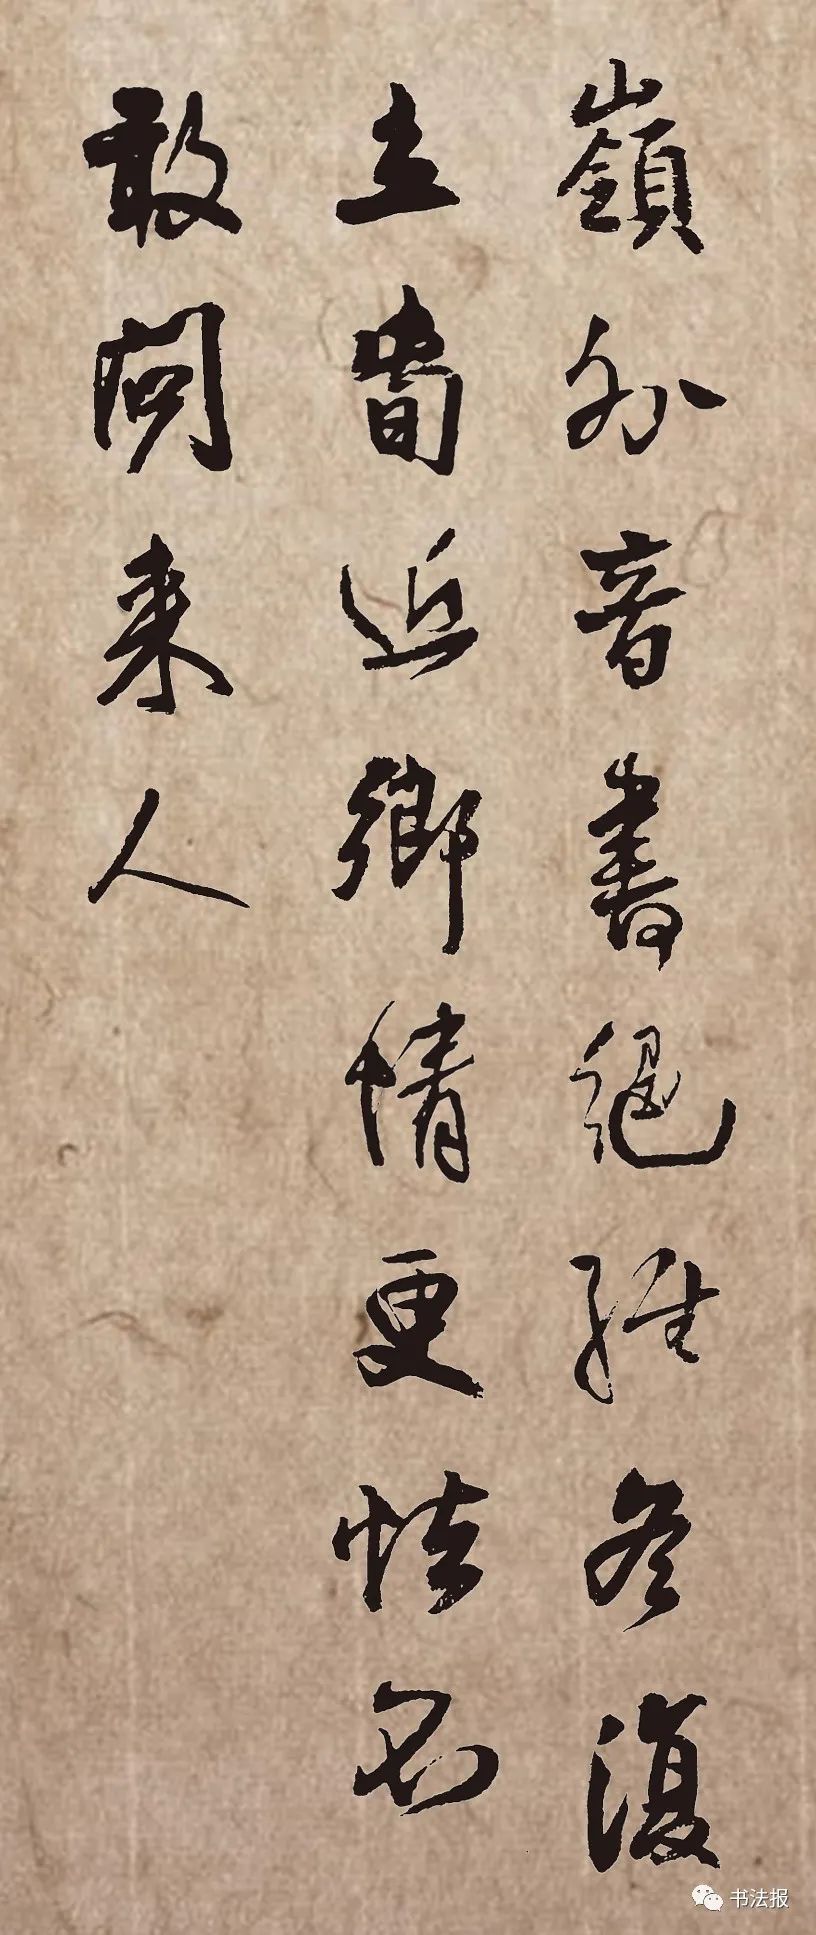 嶺外音書絕經冬復
立春近鄉情更怯不
敢問来人
书法报